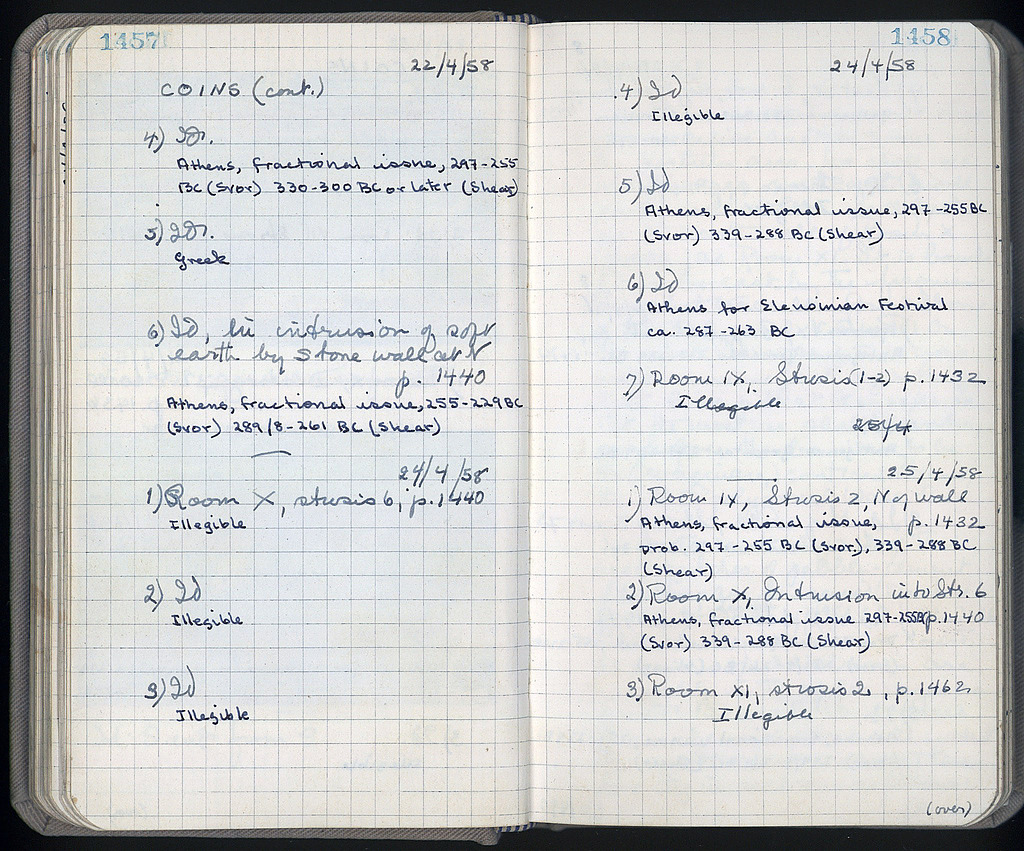 1457
22/4/58
COINS (cont.)
4) Id.
Athens, fractional issue, 297-255
BC (Svor) 330-300 BC or later (Shear)
5) Id.
Greek
6) Id, in intrusion of soft
earth by stone wall at N
p. 1440
Athens, fractional issue, 255-229 BC
(Svor) 289/8-261 BC (Shear)
24/4/58
1) Room X, strosis 6, p. 1440
Illegible
2) Id
Illegible
3) Id
Illegible
1458
24/4/58
4) Id
Illegible
5) Id
Athens, fractional issue, 297-255 BC
(Svor) 339-288 BC (Shear)
6) Id
Athens for Eleusinian Festival
ca. 287-263 BC
7) Room IX, Strosis (1-2) p. 1432
Illegible
25/4
25/4/58
1) Room IX, Strosis 2, N of wall
Athens, fractional issue, p. 1432
prob. 297-255 BC (Svor.), 339-288 BC
(Shear)
2) Room X, Intrusion into Str. 6
Athens, fractional issue 297-255 BC p. 1440
(Svor) 339-288 BC (Shear)
3) Room XI, strosis 2, p. 1462
Illegible
(over)